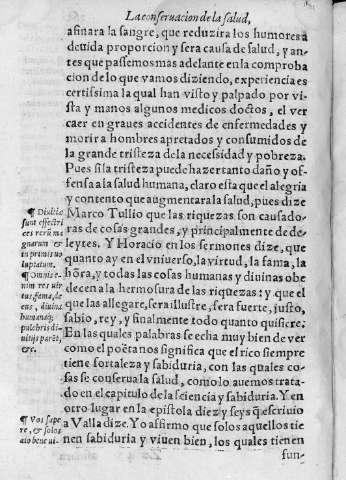 La conseruacion de la salud,
afinara la sangre, que reduzira los humores a
deuida proporcion y sera causa de salud, y an-
tes que passemos mas adelante en la comproba
cion de lo que vamos diziendo, experiencia es
certissima la qual han visto y palpado por vi-
sta y manos algunos medicos doctos, el ver
caer en graues accidentes de enfermedades y
morir a hombres apretados y consumidos de
la grande tristeza de la necessidad y pobreza.
Pues si la tristeza puede hazer tanto daño y of-
fensa a la salud humana, claro esta que el alegria
y contento que augmentara la salud, pues dize
Marco Tullio que las riquezas son causado-
ras de cosas grandes, y principalmente de de-
leytes. Y Horacio en los sermones dize, que
quanto ay en el vniuerso, la virtud, la fama, la
hõra, y todas las cosas humanas y diuinas obe
decen a la hermosura de las riquezas: y que el
que las allegare, sera illustre, sera fuerte, justo,
sabio, rey, y finalmente todo quanto quisiere.
En las quales palabras se echa muy bien de ver
como el poëta nos significa que el rico siempre
tiene fortaleza y sabiduria, con las quales co-
sas se conserua la salud, como lo auemos trata-
do en el capitulo de la sciencia y sabiduria. Y en
otro lugar en la epistola diez y seys q̃ escriuio
a Valla dize. Yo affirmo que solos aquellos tie
nen sabiduria y viuen bien, los quales tienen
fun-
¶ Diuitiæ
sunt effectri
ces rerũ ma
gnarum &
in primis uo
luptatum.
¶ Omnis e-
nim res uir
tus, fama, de
cus, diuina
humanaq;
pulchris di
uitijs parẽt,
&c.
¶ Vos sape
re, & solos
aio bene ui-